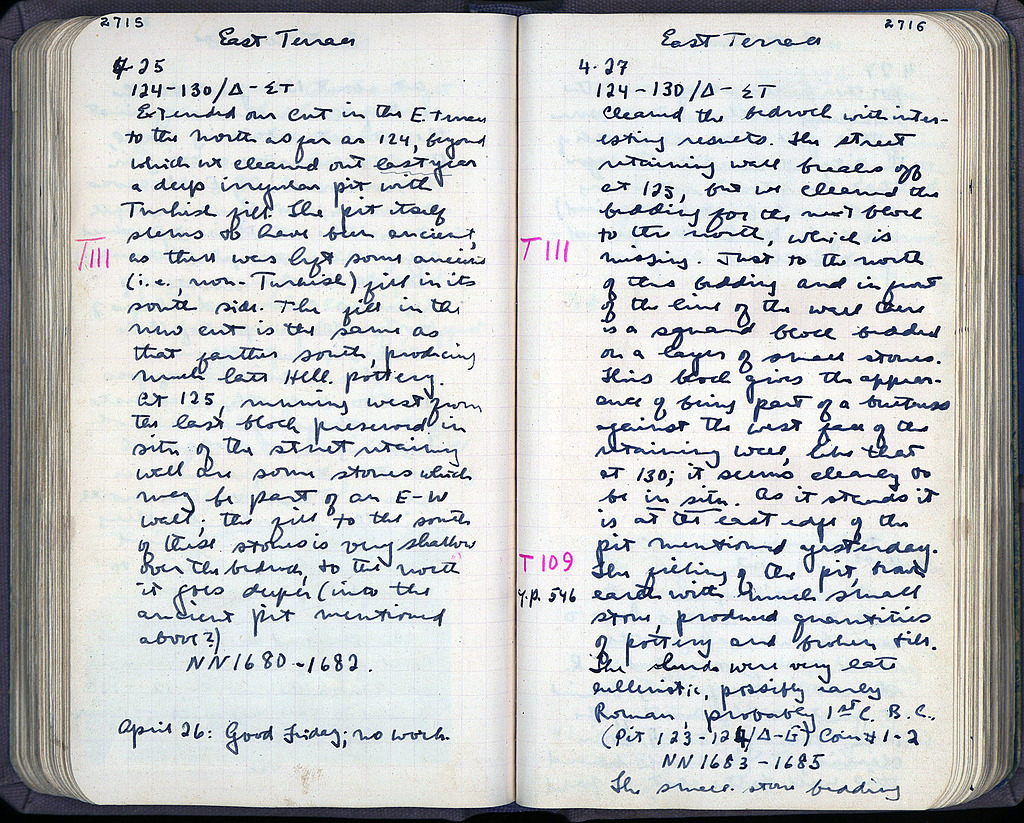 2715
East Terrace
4.25
124-130/Δ-ΣΤ
Extended our cut in the E terrace
to the north as far as 124, beyond
which we cleaned out last year
a deep irregular pit with
Turkish fill. The pit itself
seems to have been ancient,
T 111
as there was left some ancient
(i.e., non-Turkish) fill in its
south side. The fill in the
new cut is the same as
that farther south, producing
much late Hell. pottery.
At 125, running west from
the last block preserved in
situ of the street retaining
wall are some stones which
may be part of an E-W
wall; the fill to the south
of these stones is very shallow
over the bedrock, to the north
it goes deeper (into the
ancient pit mentioned
above?)
NN 1680-1682.
April 26: Good Friday; no work.
2716
East Terrace
4.27
124-130/Δ-ΣΤ
Cleaned the bedrock with inter-
esting results. The street
retaining wall breaks off
at 125, but we cleaned the
bedding for the next block
to the north, which is
T 111
missing. Just to the north
of this bedding and in front
of the line of the wall there
is a squared block bedded
on a layer of small stones.
This block gives the appear-
ance of being part of a buttress
against the west face of the
retaining wall, like that
at 130; it seems clearly to
be in situ. As it stands it
is at the east edge of the
pit mentioned yesterday.
T 109
The filling of the pit,
γ.p. 546
earth with much small
stone, produced quantities
of pottery and broken tile.
The sherds were very late
Hellenistic, possibly early
Roman, probably 1st C. B.C.
(Pit 123-124/Δ-Ε) Coin #1-2
NN 1683-1685
The small stone bedding